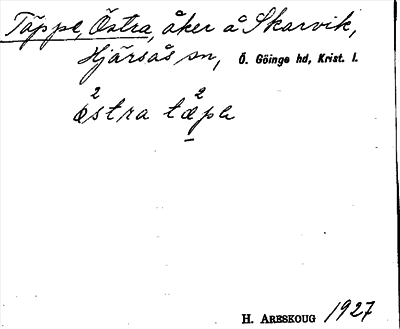 Täppe, Östra, åker å Skarvik,
Hjärsås sn, Ö. Göinge hd, Krist. l.
2 2
östra tæpə
H. ARESKOUG 1927